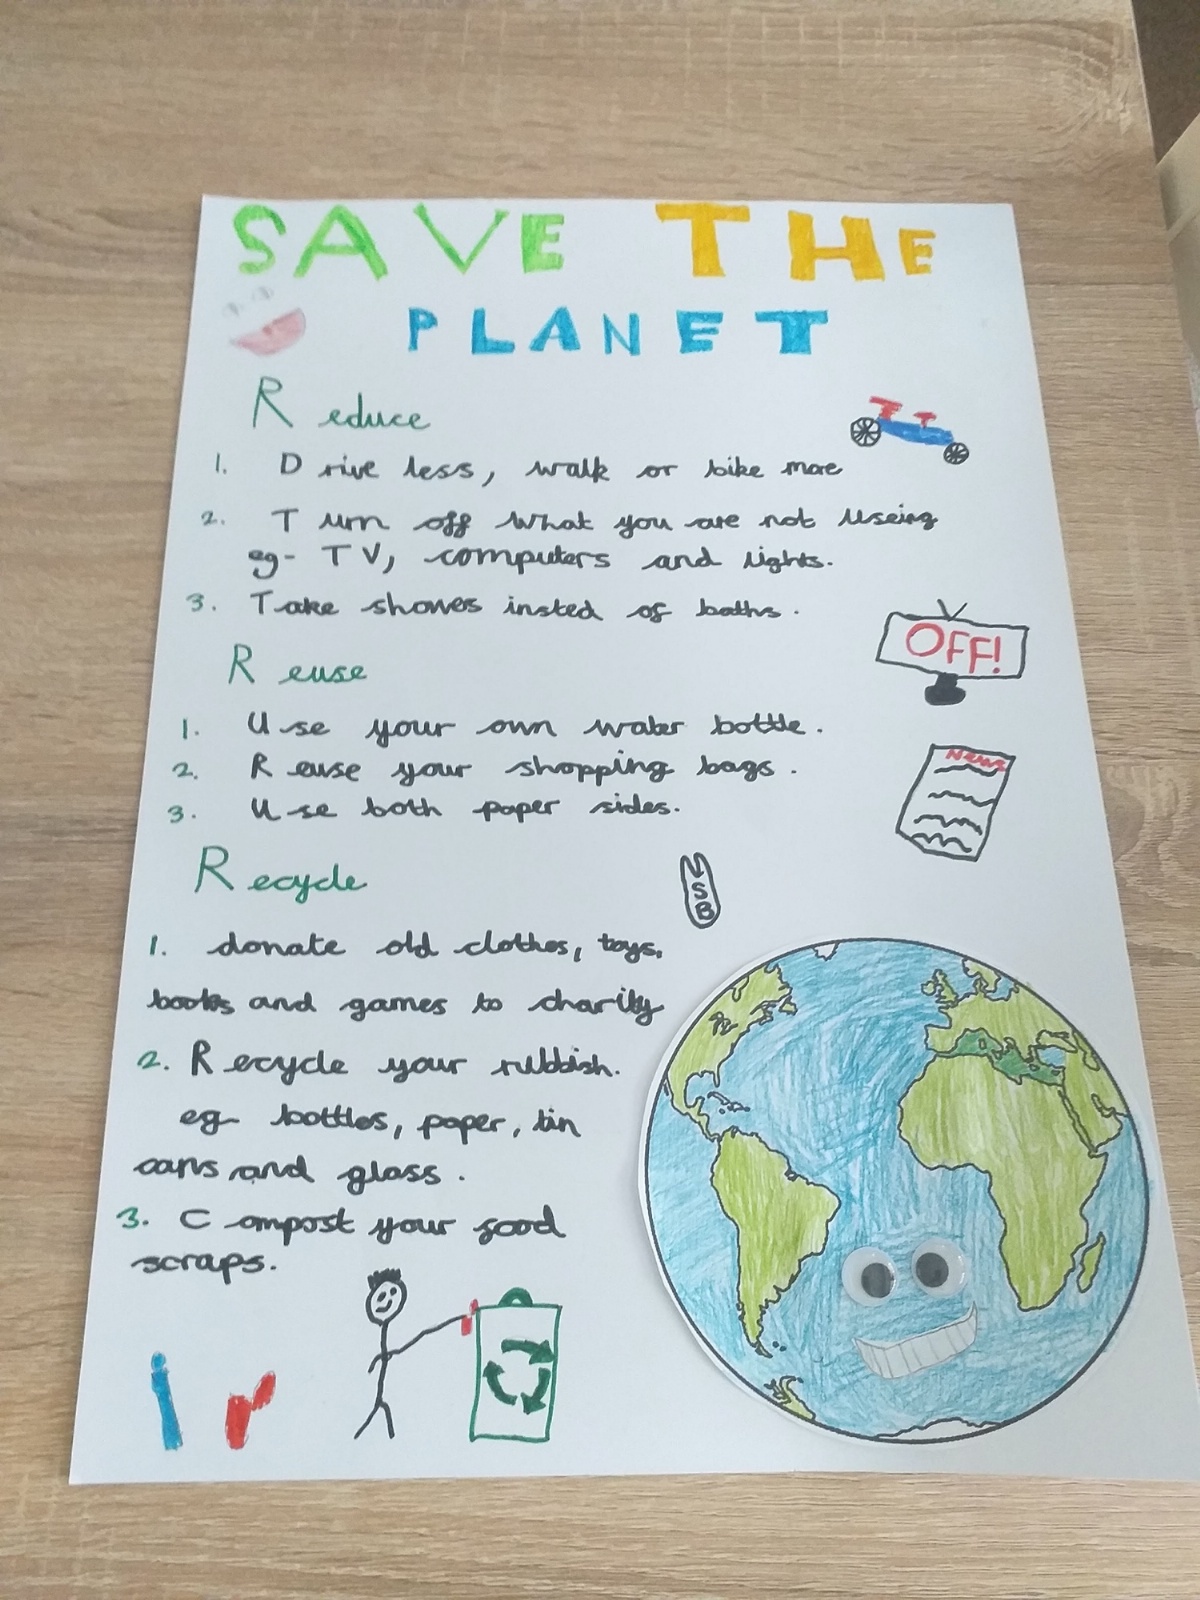 SAVE THE
PLANET
Reduce
1. Drive less, walk or bike more
2. Turn off what you are not useing
eg- TV, computers and lights.
3. Take showes insted of baths.
OFF!
Reuse
1. Use your own water bottle.
2. Reuse your shopping bags.
3. Use both paper sides.
NEWS
Recycle
USB
1. donate old clothes, toys,
books and games to charity
2. Recycle your rubbish.
eg bottles, paper, tin
cans and glass.
3. Compost your food
scraps.